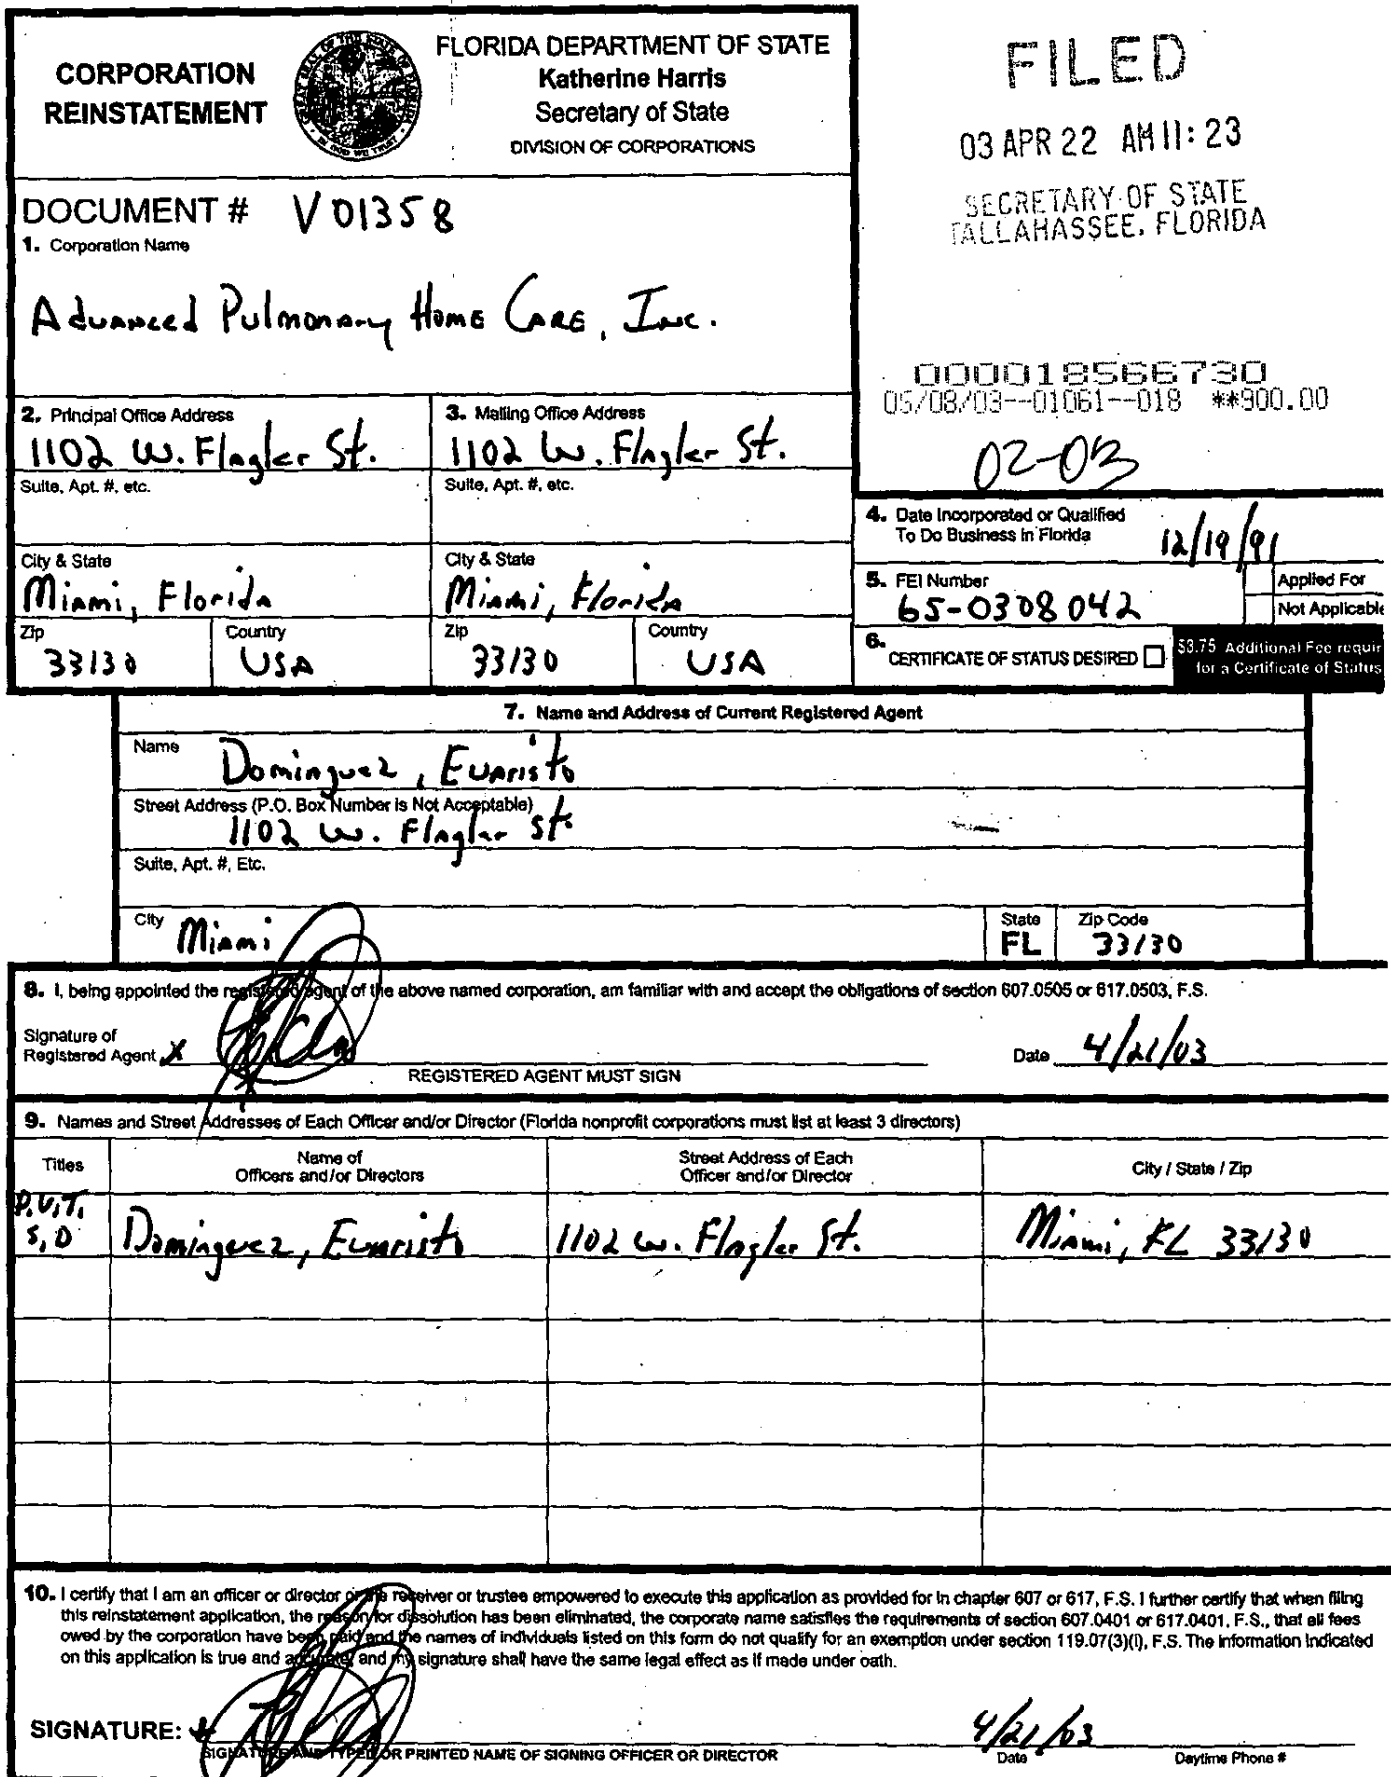 CORPORATION
REINSTATEMENT
FLORIDA DEPARTMENT OF STATE
Katherine Harris
Secretary of State
DIVISION OF CORPORATIONS
FILED
03 APR 22 AM 11: 23
SECRETARY OF STATE
TALLAHASSEE, FLORIDA
DOCUMENT # V01358
1. Corporation Name
Advanced Pulmonary Home Care, Inc.
000018566730
05/08/03--01061--018 **900.00
02-03
2. Principal Office Address
1102 W. Flagler St.
Suite, Apt. #, etc.
City & State
Miami, Florida
Zip
33130
Country
USA
3. Mailing Office Address
1102 W. Flagler St.
Suite, Apt. #, etc.
City & State
Miami, Florida
Zip
33130
Country
USA
4. Date Incorporated or Qualified
To Do Business in Florida
12/19/91
5. FEI Number
65-0308042
Applied For
Not Applicable
6.
CERTIFICATE OF STATUS DESIRED
$8.75 Additional Fee requir
for a Certificate of Status
7. Name and Address of Current Registered Agent
Name
Dominguez, Evaristo
Street Address (P.O. Box Number is Not Acceptable)
1102 W. Flagler St.
Suite, Apt. #, Etc.
City Miami
State
FL
Zip Code
33130
8. I, being appointed the registered agent of the above named corporation, am familiar with and accept the obligations of section 607.0505 or 617.0503, F.S.
Signature of
Registered Agent X
Date 4/21/03
REGISTERED AGENT MUST SIGN
9. Names and Street Addresses of Each Officer and/or Director (Florida nonprofit corporations must list at least 3 directors)
Titles
Name of
Officers and/or Directors
Street Address of Each
Officer and/or Director
City / State / Zip
P,V,T,
S, D
Dominguez, Evaristo
1102 W. Flagler St.
Miami, FL 33130
10. I certify that I am an officer or director or the receiver or trustee empowered to execute this application as provided for in chapter 607 or 617, F.S. I further certify that when filing
this reinstatement application, the reason for dissolution has been eliminated, the corporate name satisfies the requirements of section 607.0401 or 617.0401, F.S., that all fees
owed by the corporation have been paid and the names of individuals listed on this form do not qualify for an exemption under section 119.07(3)(i), F.S. The information indicated
on this application is true and accurate, and my signature shall have the same legal effect as if made under oath.
SIGNATURE:
4/21/03
SIGNATURE AND TYPED OR PRINTED NAME OF SIGNING OFFICER OR DIRECTOR
Date
Daytime Phone #